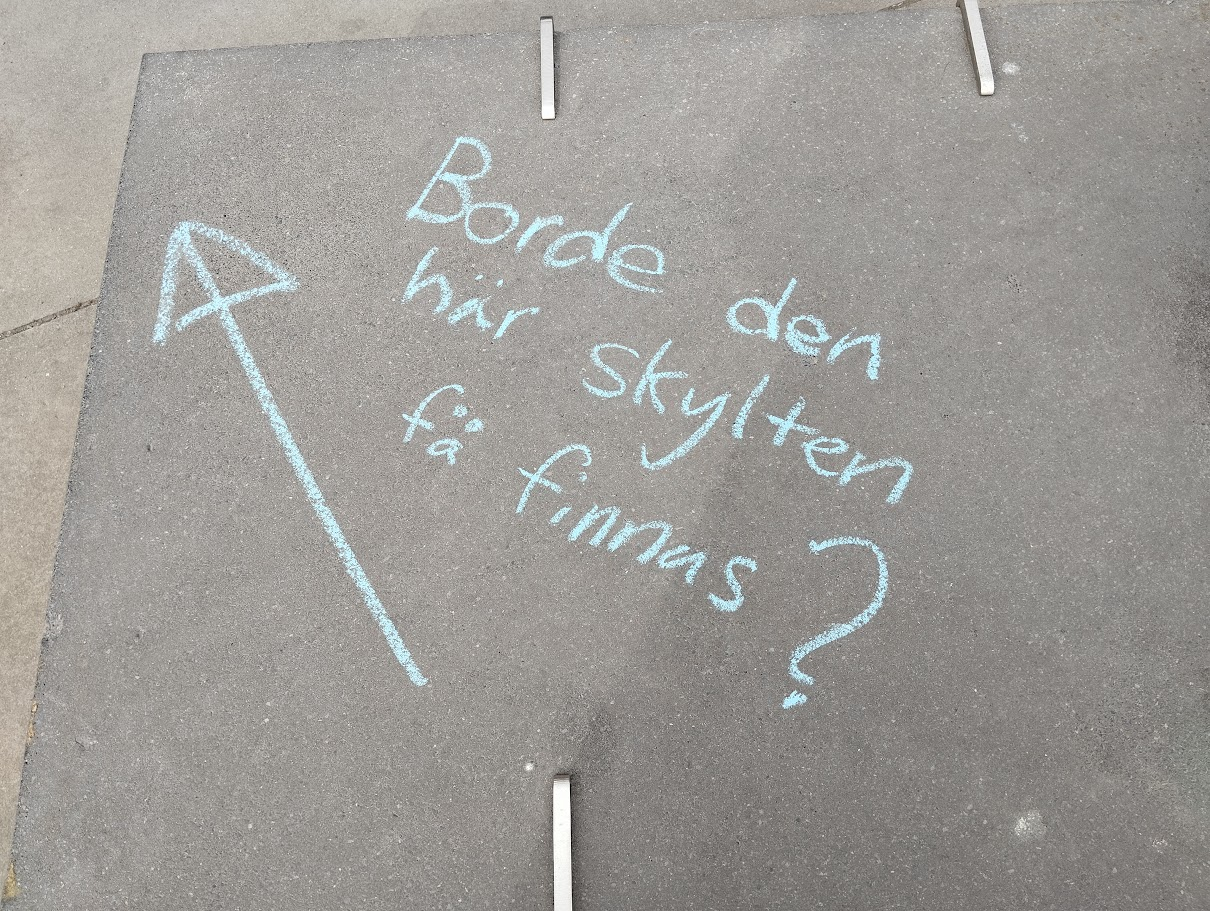 Borde den
här skylten
fä finnas?